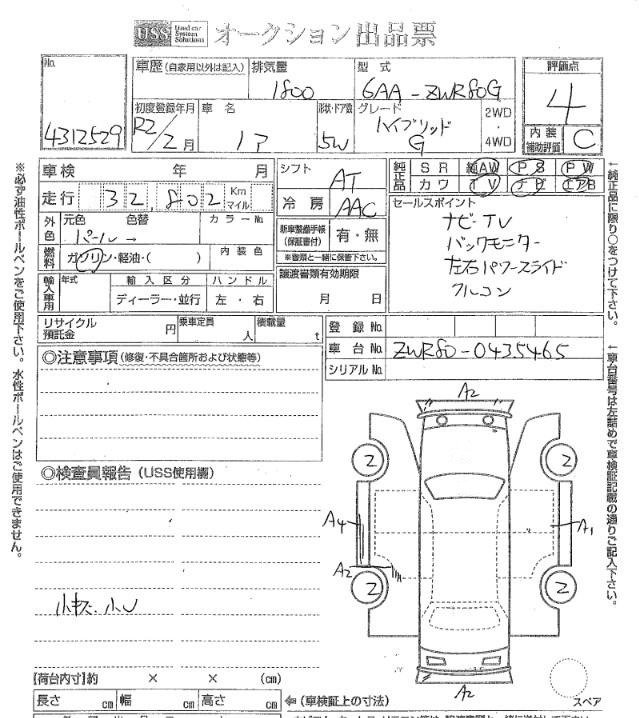 USS Used car System Solutions オークション出品票
No. 4312529
車歴 (自家用以外は記入) 排気量 1800 型式 6AA-ZWR80G
評価点 4
内装補助評価 C
初度登録年月 R2/2月 車名 形状・ドア数 5W グレード ハイブリッド G 2WD・4WD
車検 年 月
走行 32,802 Km マイル
シフト AT
冷房 AAC
純正品 SR 純AW PS PW
カワ TV ナビ エアB
外色 元色 色替 カラーNo.
パール
燃料 ガソリン・軽油・( ) 内装色
新車整備手帳(保証書付) 有・無
※書類と一緒に保管下さい。
セールスポイント
ナビTV
バックモニター
左右パワースライド
フルコン
輸入車用 年式 輸入区分 ハンドル
ディーラー・並行 左・右
譲渡書類有効期限
月 日
リサイクル預託金 円 乗車定員 人 積載量 t
登録No.
車台No. ZWR80-0435465
シリアルNo.
◎注意事項 (修復・不具合箇所および状態等)
◎検査員報告 (USS使用欄)
A2
2 2
A4 A1
A2
2 2
A2
スペア
【荷台内寸】約 × × (cm)
長さ cm 幅 cm 高さ cm ⇦(車検証上の寸法)
※必ず油性ボールペンをご使用下さい。水性ボールペンはご使用できません。
←純正品に限り○をつけて下さい。
←車台番号は左詰めで車検証記載の通りご記入下さい。